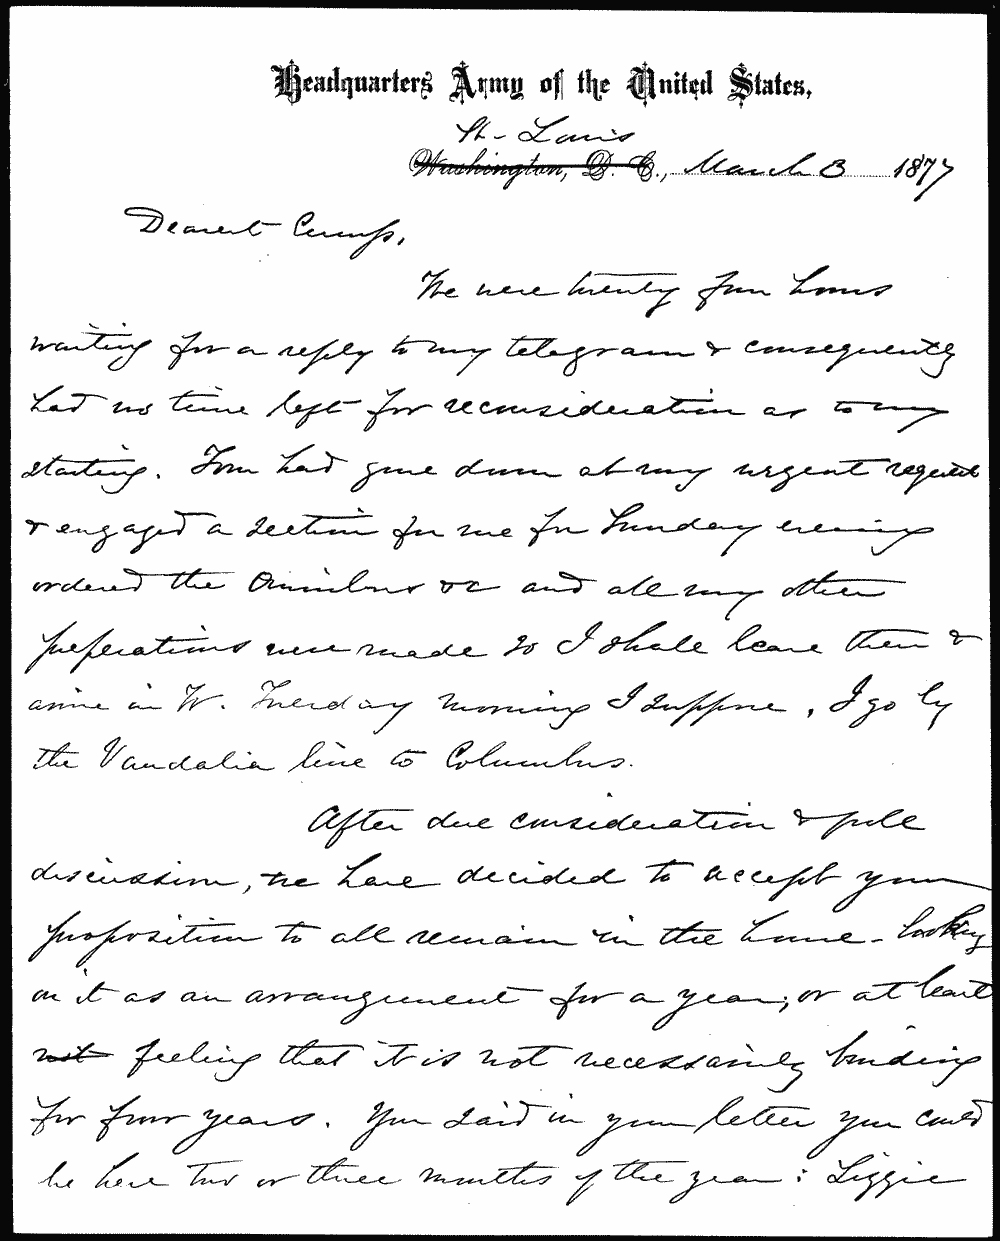 Headquarters Army of the United States,
St. Louis
Washington, D. C., March 3 1877
Dearest Cump,
We were twenty four hours
waiting for a reply to my telegram & consequently
had no time left for reconsideration as to my
starting. Tom had gone down at my urgent request
& engaged a section for me for Sunday evening
ordered the Omnibus &c and all my other
preperations were made so I shall leave then &
arrive in W. Tuesday morning I suppose, I go by
the Vandalia line to Columbus.
After due consideration & full
discussion, we have decided to accept your
proposition to all remain in the house - looking
on it as an arrangement for a year; or at least
not feeling that it is not necessarily binding
for four years. You said in your letter you could
be here two or three months of the year: Lizzie